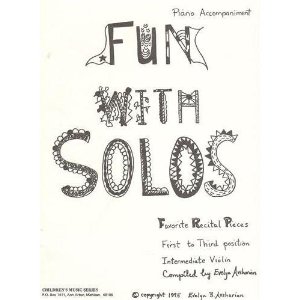 Piano Accompaniment
FUN
WITH
SOLOS
Favorite Recital Pieces
First to Third position
Intermediate Violin
Compiled by Evelyn Avsharian
CHILDREN'S MUSIC SERIES
P.O. Box Ann Arbor, Michigan
© copyright Evelyn B. Avsharian